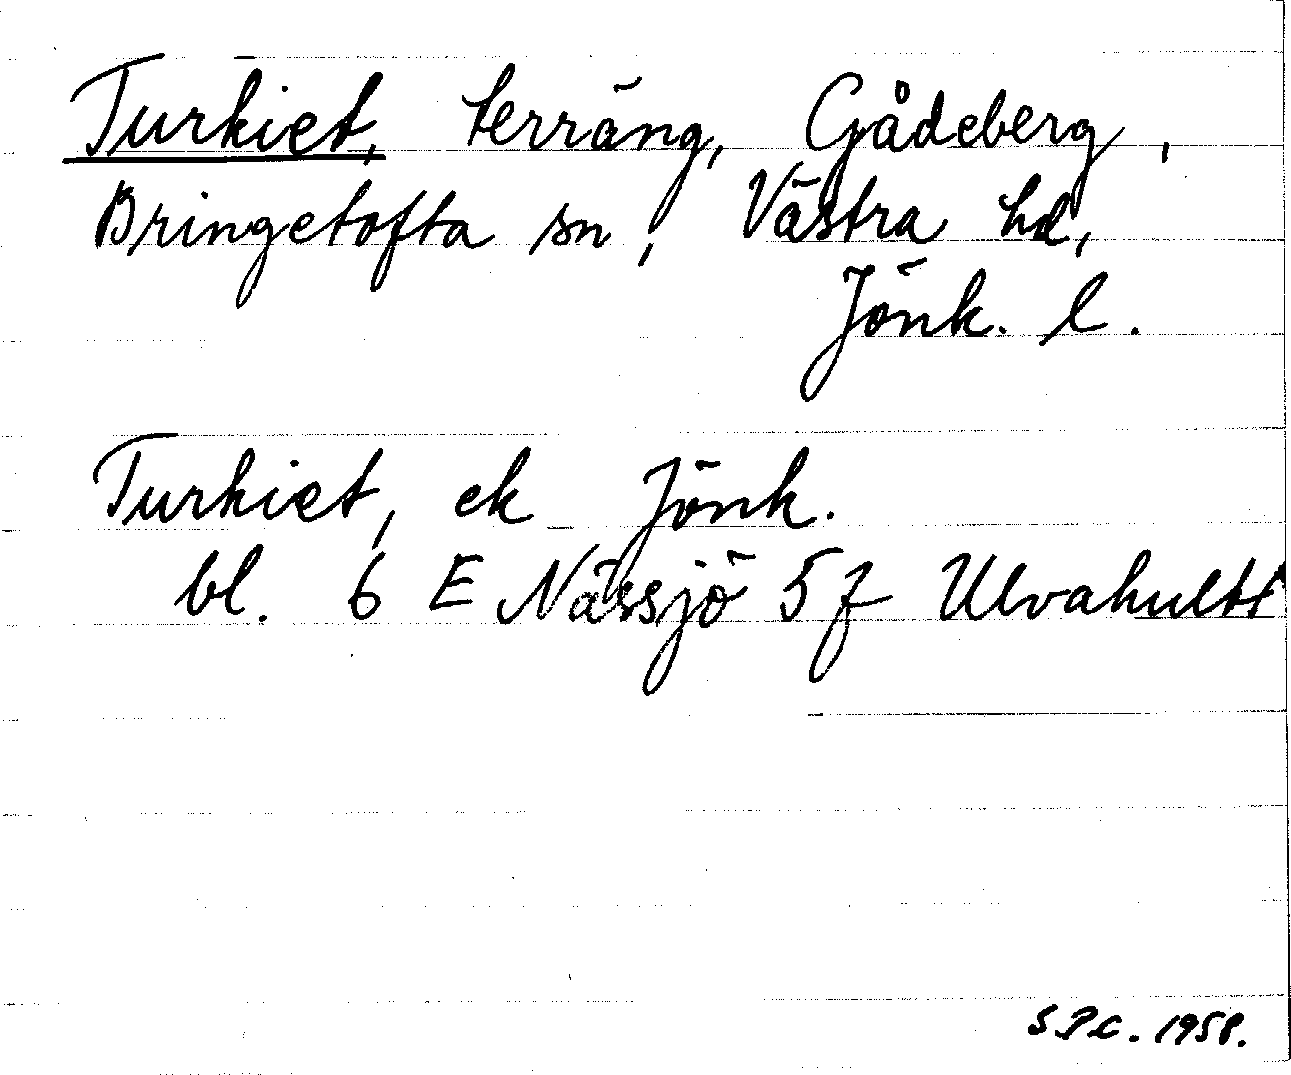 Turkiet, terräng, Gådeberg,
Bringetofta sn, Västra hd,
Jönk. l.
Turkiet, ek Jönk.
bl. 6 E Nässjö 5 f Ulvahult
S.P.C. 1958.